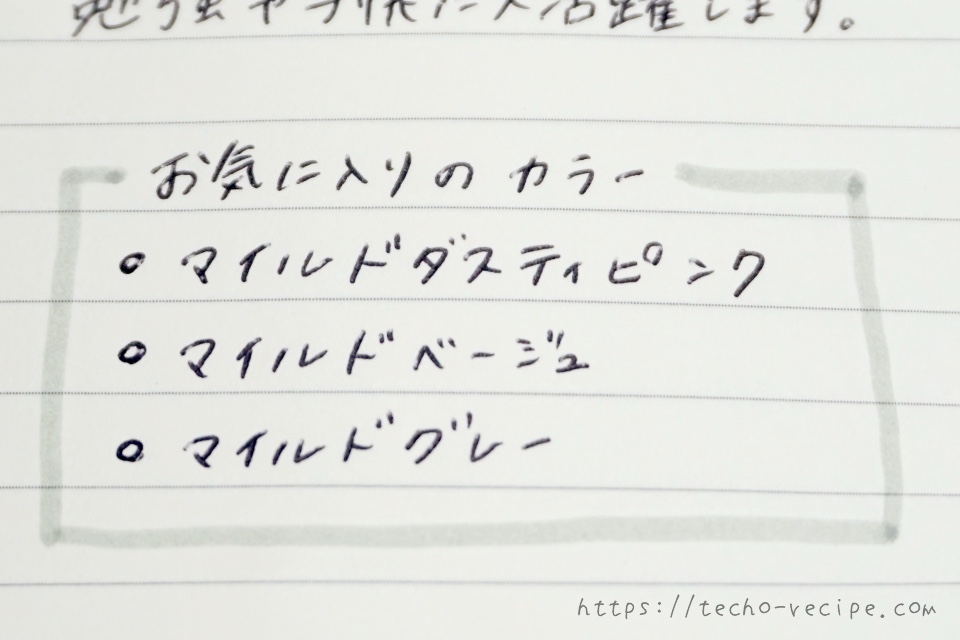 勉強や手帳に大活躍します。
お気に入りのカラー
○ マイルドダスティピンク
○ マイルドベージュ
○ マイルドグレー
https://techo-recipe.com